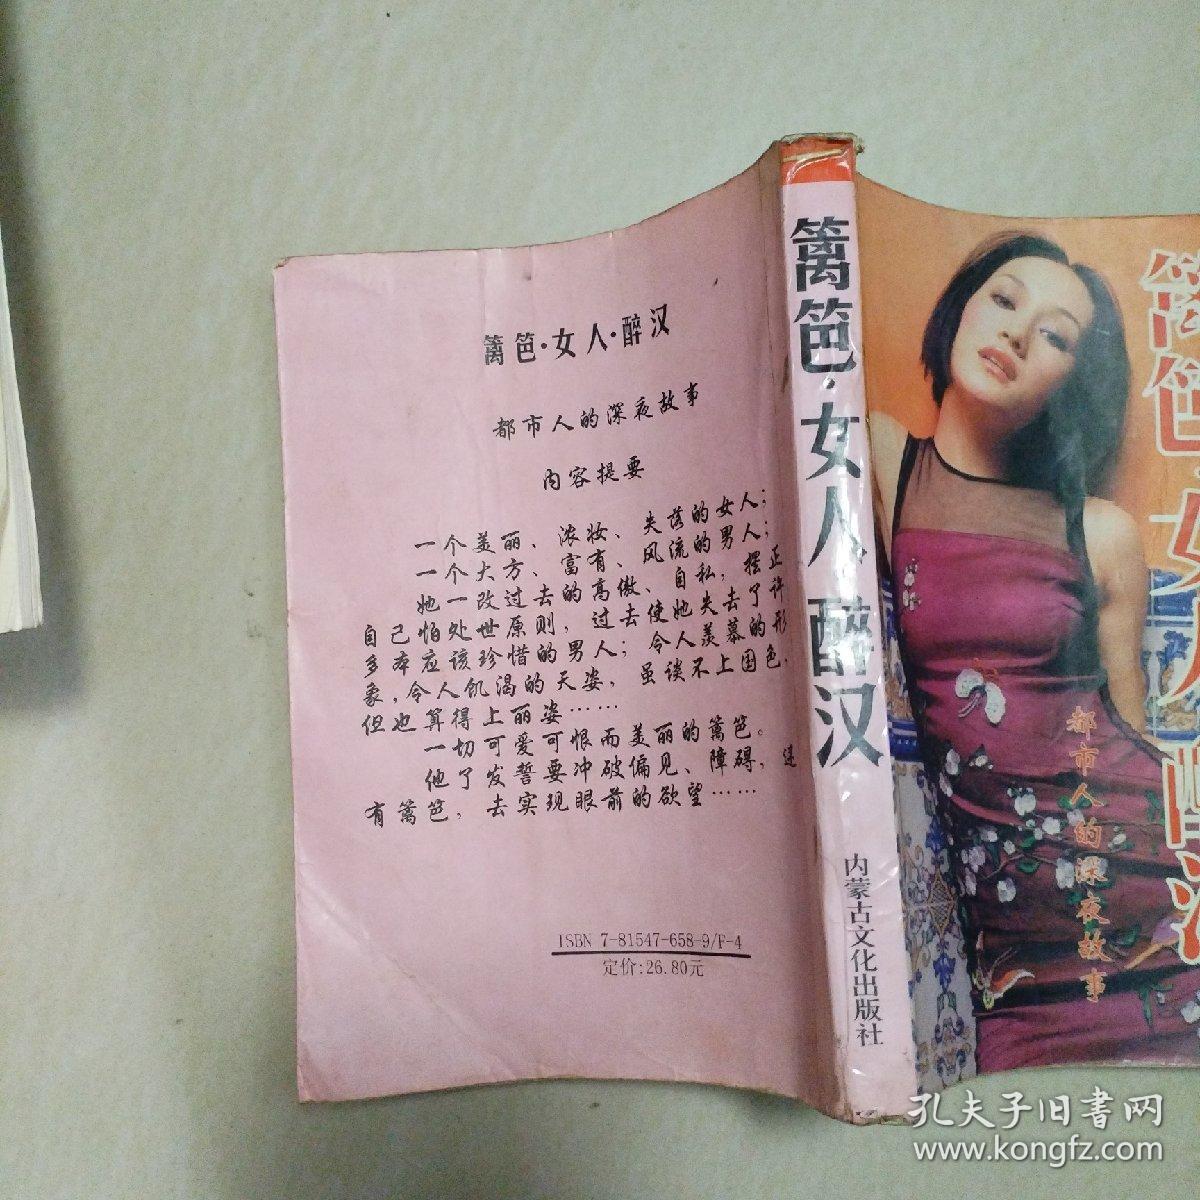 篱笆·女人·醉汉
都市人的深夜故事
内容提要
一个美丽、浓妆、失落的女人；
一个大方、富有、风流的男人；
她一改过去的高傲、自私，摆正
自己怕处世原则，过去使她失去了许
多本应该珍惜的男人；令人羡慕的形
象，令人饥渴的天姿，虽谈不上国色，
但也算得上丽姿……
一切可爱可恨而美丽的篱笆。
他了发誓要冲破偏见、障碍，还
有篱笆，去实现眼前的欲望……
ISBN 7-81547-658-9/F-4
定价:26.80元
篱笆·女人 醉汉
内蒙古文化出版社
篱笆·女人 醉汉
都市人的深夜故事
孔夫子旧书网
www.kongfz.com